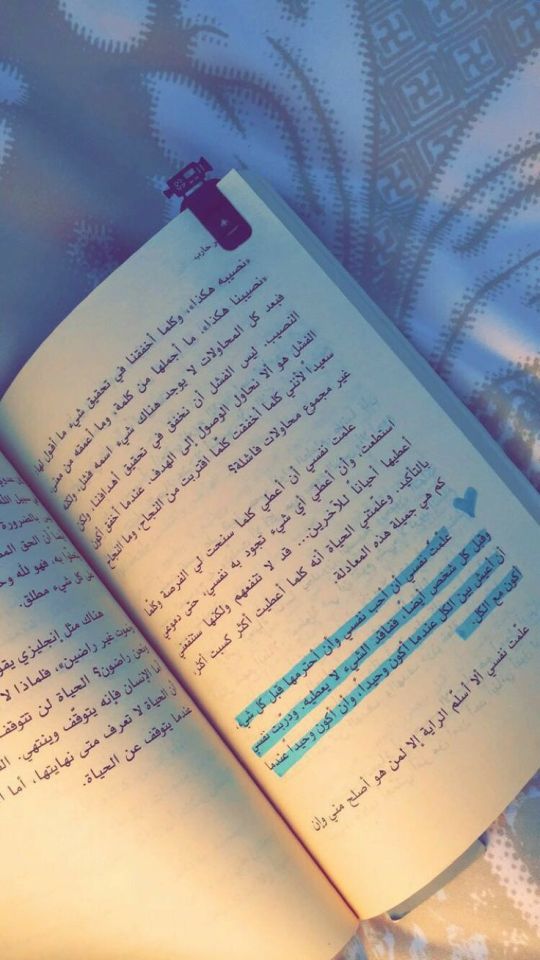 حارب
«نصيبه هكذا»، وكلما أخفقنا في تحقيق شيء ما أقول لها
«نصيبنا هكذا»، ما أجملها من كلمة، وما أعمقه من معنى
فبعد كل المحاولات لا يوجد هناك شيء اسمه فشل، ولكنه
النصيب. ليس الفشل أن نخفق في تحقيق أهدافنا، ولكن
الفشل هو ألا نحاول الوصول إلى الهدف. عندما أخفق أكون
سعيداً لأنني كلما أخفقت كلما اقتربت من النجاح، وما النجاح
غير مجموع محاولات فاشلة؟
علمت نفسي أن أعطي كلما سنحت لي الفرصة وكلما
استطعت، وأن أعطي أي شيء تجود به نفسي، حتى دموعي
أعطيها أحياناً للآخرين... قد لا تنفعهم ولكنها ستنفعني
بالتأكيد. وعلّمتني الحياة أنه كلما أعطيت أكثر كسبت أكثر،
كم هي جميلة هذه المعادلة.
علمتُ نفسي أن أحب نفسي وأن أحترمها قبل كل شيء،
وقبل كل شخص أيضاً، ففاقد الشيء لا يعطيه. ودرّبت نفسي
أن أعيش بين الكل عندما أكون وحيداً، وأن أكون وحيداً عندما
أكون مع الكل.
علّمت نفسي ألا أسلّم الراية إلا لمن هو أصلح مني وان
سبيل الله
بالضرورة
أن الحق
به، فهو الله
كل شيء مطلق.
هناك مثل إنجليزي يقو
يموت غير راضين»، فلماذا لا
ونحن راضون؟ الحياة لن تتوقف
الإنسان فإنه يتوقّف وينتهي.
الحياة لا تعرف متى نهايتها، أما
عندما يتوقف عن الحياة.